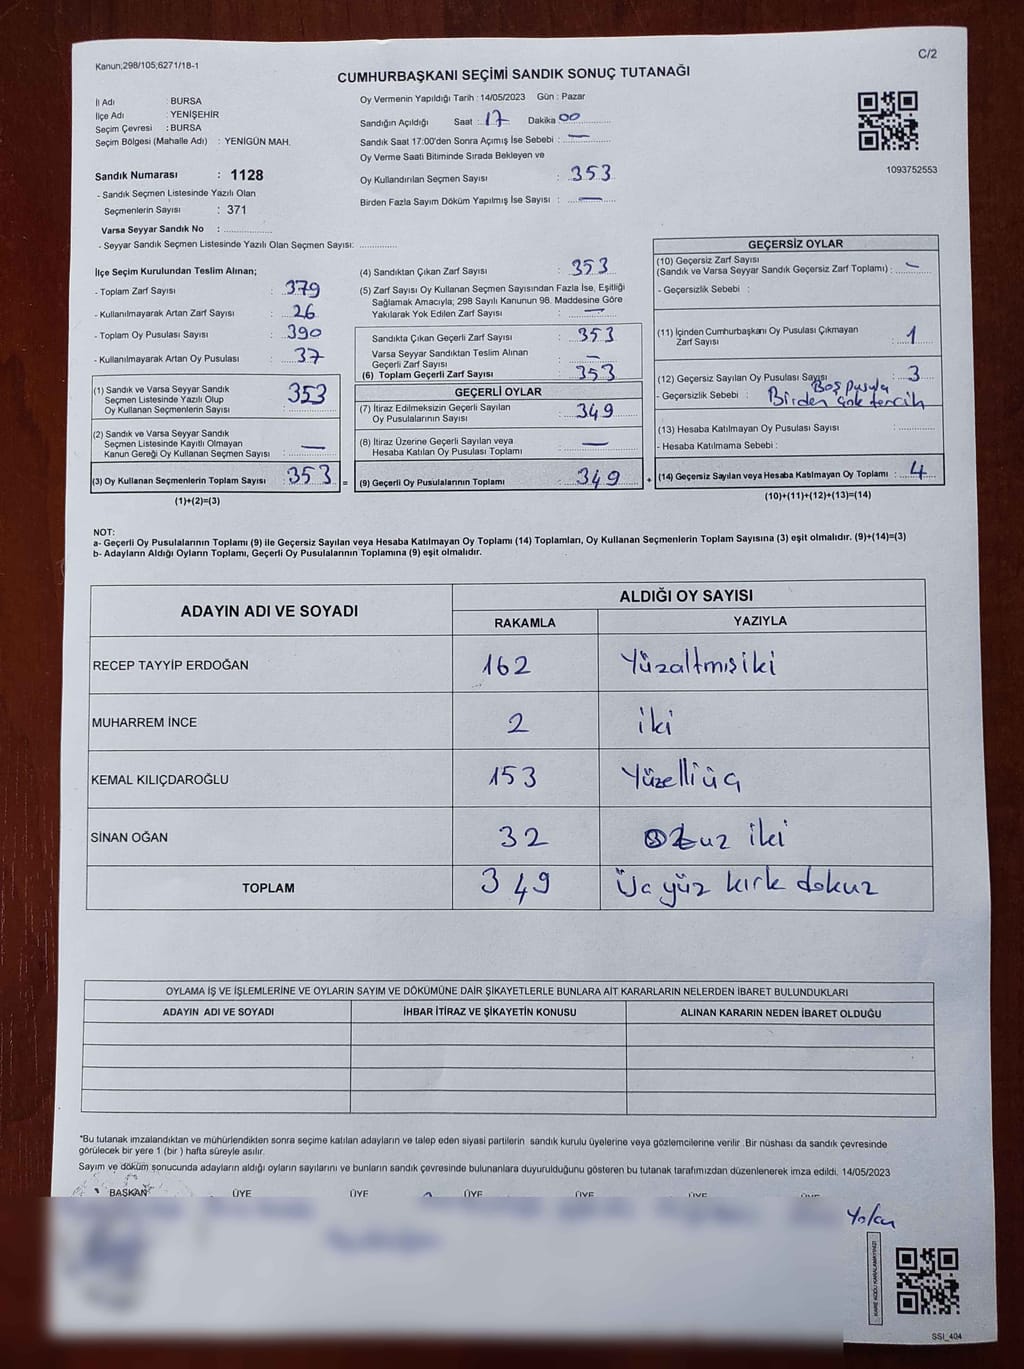 Kanun;298/105;6271/18-1
C/2
CUMHURBAŞKANI SEÇİMİ SANDIK SONUÇ TUTANAĞI
İl Adı : BURSA
İlçe Adı : YENİŞEHİR
Seçim Çevresi : BURSA
Seçim Bölgesi (Mahalle Adı) : YENİGÜN MAH.
Sandık Numarası : 1128
- Sandık Seçmen Listesinde Yazılı Olan
Seçmenlerin Sayısı : 371
Varsa Seyyar Sandık No : ..............
- Seyyar Sandık Seçmen Listesinde Yazılı Olan Seçmen Sayısı: ............
Oy Vermenin Yapıldığı Tarih : 14/05/2023 Gün : Pazar
Sandığın Açıldığı Saat : 17 Dakika 00
Sandık Saat 17:00'den Sonra Açımış İse Sebebi : —
Oy Verme Saati Bitiminde Sırada Bekleyen ve
Oy Kullandırılan Seçmen Sayısı : 353
Birden Fazla Sayım Döküm Yapılmış İse Sayısı : —
1093752553
İlçe Seçim Kurulundan Teslim Alınan;
- Toplam Zarf Sayısı : 379
- Kullanılmayarak Artan Zarf Sayısı : 26
- Toplam Oy Pusulası Sayısı : 390
- Kullanılmayarak Artan Oy Pusulası : 37
(1) Sandık ve Varsa Seyyar Sandık
Seçmen Listesinde Yazılı Olup
Oy Kullanan Seçmenlerin Sayısı : 353
(2) Sandık ve Varsa Seyyar Sandık
Seçmen Listesinde Kayıtlı Olmayan
Kanun Gereği Oy Kullanan Seçmen Sayısı : —
(3) Oy Kullanan Seçmenlerin Toplam Sayısı : 353 =
(1)+(2)=(3)
(4) Sandıktan Çıkan Zarf Sayısı : 353
(5) Zarf Sayısı Oy Kullanan Seçmen Sayısından Fazla İse, Eşitliği
Sağlamak Amacıyla; 298 Sayılı Kanunun 98. Maddesine Göre
Yakılarak Yok Edilen Zarf Sayısı : —
Sandıkta Çıkan Geçerli Zarf Sayısı : 353
Varsa Seyyar Sandıktan Teslim Alınan
Geçerli Zarf Sayısı : —
(6) Toplam Geçerli Zarf Sayısı : 353
GEÇERLİ OYLAR
(7) İtiraz Edilmeksizin Geçerli Sayılan
Oy Pusulalarının Sayısı : 349
(8) İtiraz Üzerine Geçerli Sayılan veya
Hesaba Katılan Oy Pusulası Toplamı : —
(9) Geçerli Oy Pusulalarının Toplamı : 349 +
GEÇERSİZ OYLAR
(10) Geçersiz Zarf Sayısı
(Sandık ve Varsa Seyyar Sandık Geçersiz Zarf Toplamı) : —
- Geçersizlik Sebebi :
(11) İçinden Cumhurbaşkanı Oy Pusulası Çıkmayan
Zarf Sayısı : 1
(12) Geçersiz Sayılan Oy Pusulası Sayısı : 3
Boş Pusula
- Geçersizlik Sebebi : Birden çok tercih
(13) Hesaba Katılmayan Oy Pusulası Sayısı : ............
- Hesaba Katılmama Sebebi :
(14) Geçersiz Sayılan veya Hesaba Katılmayan Oy Toplamı : 4
(10)+(11)+(12)+(13)=(14)
NOT:
a- Geçerli Oy Pusulalarının Toplamı (9) ile Geçersiz Sayılan veya Hesaba Katılmayan Oy Toplamı (14) Toplamları, Oy Kullanan Seçmenlerin Toplam Sayısına (3) eşit olmalıdır. (9)+(14)=(3)
b- Adayların Aldığı Oyların Toplamı, Geçerli Oy Pusulalarının Toplamına (9) eşit olmalıdır.
ADAYIN ADI VE SOYADI ALDIĞI OY SAYISI
RAKAMLA YAZIYLA
RECEP TAYYİP ERDOĞAN 162 Yüzaltmışiki
MUHARREM İNCE 2 iki
KEMAL KILIÇDAROĞLU 153 Yüzelliüç
SİNAN OĞAN 32 Otuz iki
TOPLAM 349 Üç yüz kırk dokuz
OYLAMA İŞ VE İŞLEMLERİNE VE OYLARIN SAYIM VE DÖKÜMÜNE DAİR ŞİKAYETLERLE BUNLARA AİT KARARLARIN NELERDEN İBARET BULUNDUKLARI
ADAYIN ADI VE SOYADI İHBAR İTİRAZ VE ŞİKAYETİN KONUSU ALINAN KARARIN NEDEN İBARET OLDUĞU
*Bu tutanak imzalandıktan ve mühürlendikten sonra seçime katılan adayların ve talep eden siyasi partilerin sandık kurulu üyelerine veya gözlemcilerine verilir .Bir nüshası da sandık çevresinde
görülecek bir yere 1 (bir ) hafta süreyle asılır.
Sayım ve döküm sonucunda adayların aldığı oyların sayılarını ve bunların sandık çevresinde bulunanlara duyurulduğunu gösteren bu tutanak tarafımızdan düzenlenerek imza edildi. 14/05/2023
BAŞKAN ÜYE ÜYE ÜYE ÜYE ÜYE ÜYE
KARE KODU KARALAMAYINIZ!
SSI_404